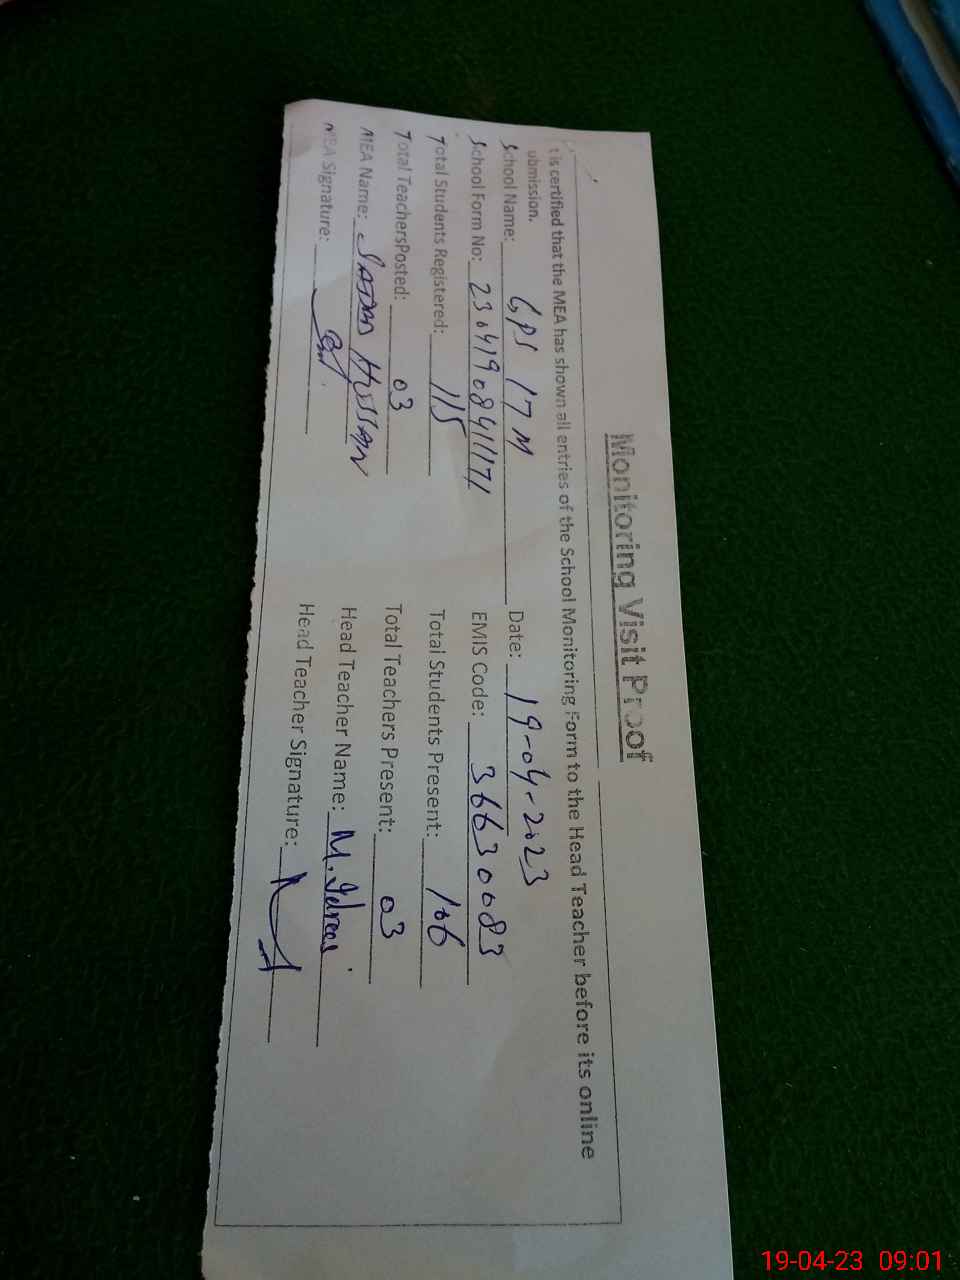 Monitoring Visit Proof
t is certified that the MEA has shown all entries of the School Monitoring Form to the Head Teacher before its online
ubmission.
School Name: GPS 17 M Date: 19-04-2023
School Form No: 23041908411171 EMIS Code: 36630083
Total Students Registered: 115 Total Students Present: 106
Total TeachersPosted: 03 Total Teachers Present: 03
MEA Name: HUSSAN Head Teacher Name: M. Idrees
MEA Signature: Head Teacher Signature:
19-04-23 09:01